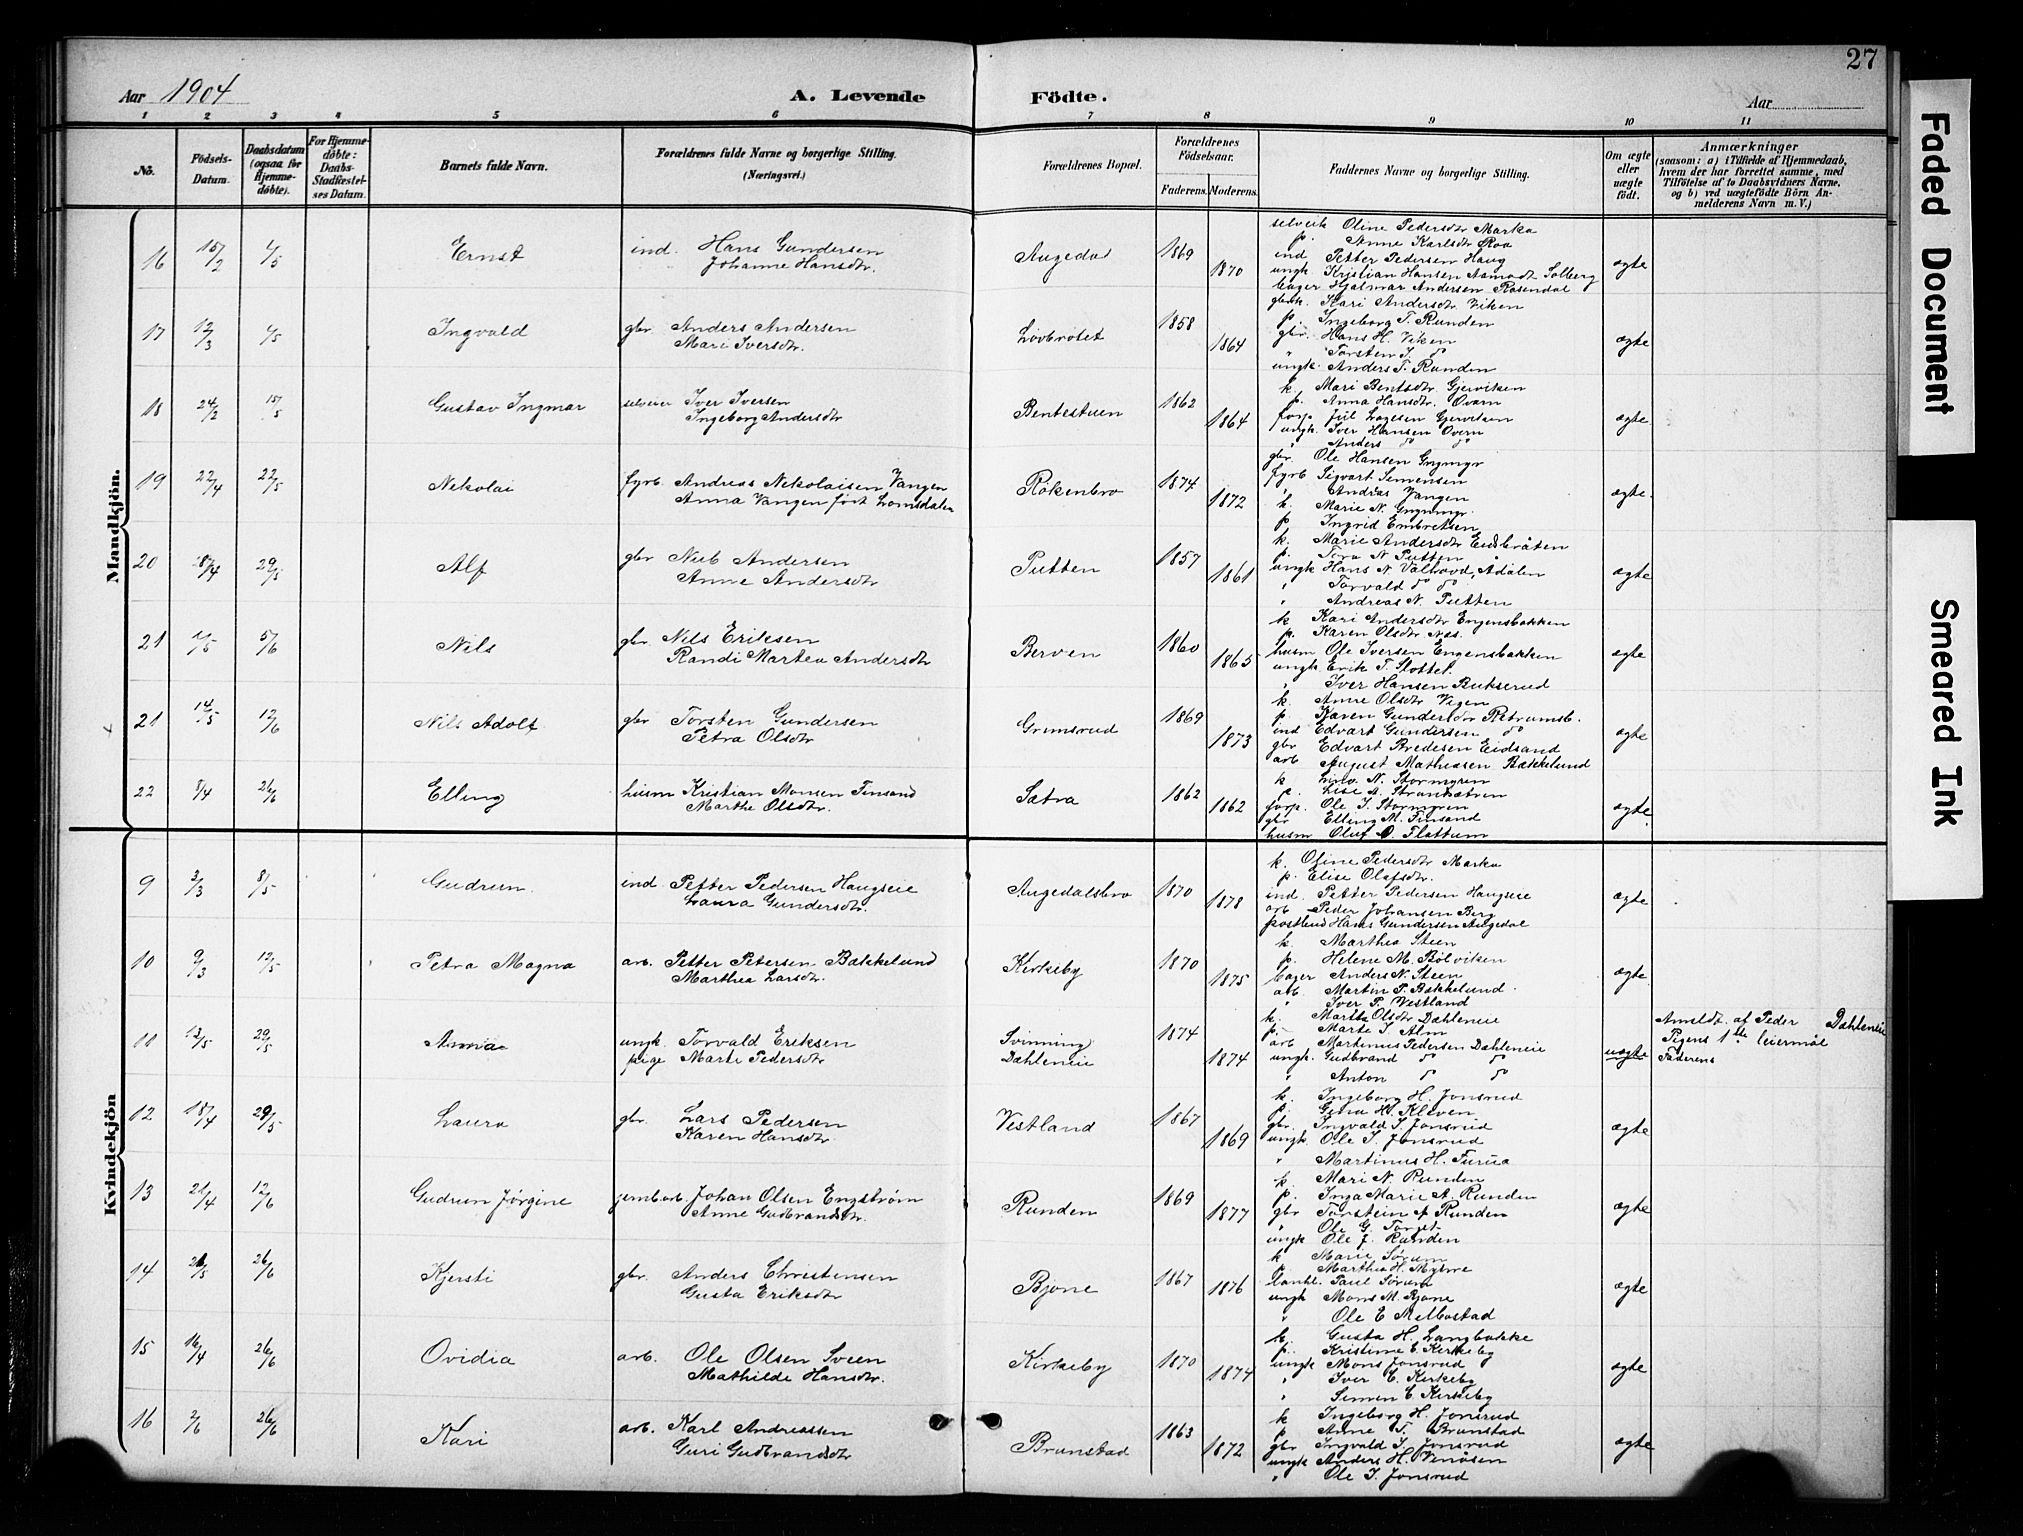 27
Aar 1904 A. Levende Födte. Aar
1 2 3 4 5 6 7 8 9 10 11
No. Födsels-Datum. Daabsdatum (ogsaa for Hjemmedøbte). For Hjemmedøbte: Daabs-Stadfæstelses Datum. Barnets fulde Navn. Forældrenes fulde Navne og borgerlige Stilling. (Næringsvei.) Forældrenes Bopæl. Forældrenes Födselsaar. Faderens. Moderens. Faddernes Navne og borgerlige Stilling. Om ægte eller uægte födt. Anmærkninger (saasom: a) i Tilfælde af Hjemmedaab, hvem der har forrettet samme, med Tilföielse af to Daabsvidners Navne, og b) ved uægtefödte Börn Anmelderens Navn m. V.)
Mandkjön.
16 15/2 Ernst ind. Hans Gundersen Augedal 1869 selveik Oline Pedersdtr Marka
Johanne Hansdtr. 1870 p. Anne Karlsdtr Roa ægte
ind Petter Pedersen Haug
ungk Kristian Hansen Aamodt Solberg
bager Hjalmar Andersen Rosendal
17 12/3 Ingvald gbr Anders Andersen Lövbrötet 1858 gbrk. Kari Andersdtr Viken
Mari Iversdtr. 1864 p. Ingeborg T. Runden ægte
gbr. Hans H. Viken
" Torsten I. do
ungk. Anders T. Runden
18 24/2 15/5 Gustav Ingmar selveier Iver Iversen Bentestuen 1862 k Mari Bentsdtr. Gjerviken
Ingeborg Andersdtr 1864 p. Anna Hansdtr. Overn ægte
forp. Gjerviken
ungk. Iver Hansen Overn
" Anders do do
19 22/4 22/5 Nikolai fyrb Andreas Nikolaisen Vangen Rökenbro 1874 gbr Ole Hansen
Anna Vangen födt Lomsdalen 1872 fyrb Sigvart Simensen ægte
" Andreas Vangen
k. Marie N.
p Ingrid Embretsen
20 29/5 Alf gbr Nub Andersen Putten 1857 k. Marie Andersdtr Eidsbråten
Anne Andersdtr 1861 p. Tora N Putten ægte
ungk Hans N Valhovd, Ådalen
" Torvald do do
" Andreas N. Putten
21 5/6 Nils gbr Nils Eriksen Berven 1860 k Kari Andersdtr Engensbakken
Randi Martea Andersdtr 1865 p. Karen Olsdtr Næs. ægte
husm Ole Iversen Engensbakken
ungk Erik T. Slottet
" Iver Hansen Bukserud
21 14/5 12/6 Nils Adolf gbr Torsten Gundersen Grimsrud 1869 k. Anne Olsdtr Vigen
Petra Olsdtr 1873 p. Karen Gundersdtr ægte
ind Edvart Gundersen do
gbr Edvart Bredesen Eidsand
arb August Mathiasen Bækkelund
22 8/4 26/6 Elling husm Kristian Monsen Finsand Sætra 1862 k N. Stormyren
Marthe Olsdtr. 1862 p. Lise A. ægte
forp. Ole I. Stormyren
gbr Elling M. Finsand
husm Oluf O. Flattum
Kvindekjön
9 3/3 8/5 Gudrun. ind. Petter Pedersen Haugseie Augedalsbro 1870 k. Oline Pedersdtr Marka
Laura Gundersdtr. 1878 p. Elise Olafsdtr. ægte
ind. Petter Pedersen Haugseie
arb Peder Johansen Berg
postbud Hans Gundersen Augedal
10 9/3 12/5 Petra Magna arb. Petter Petersen Bækkelund Kirkeby 1870 k. Marthea Steen
Marthea Larsdtr. 1875 p. Helene M. Bölviken ægte
bager Anders N. Steen
arb. Martin P. Bækkelund
" Iver P. Vestland
11 13/5 29/5 Anna ungk Torvald Eriksen Svinning 1874 k. Martha Olsdtr Dæhleneie Anmeldt. af Peder Dæhleneie
pige Marte Pedersdtr Dæhleneie 1874 p. Marte I. Alm uægte Pigens 1ste leiermål
arb Martinus Pedersen Dæhleneie Faderens
ungk. Gudbrand do do
" Anton do do
12 18/4 29/5 Laura gbr. Lars Pedersen Vestland 1867 k. Ingeborg H. Jonsrud
Karen Hansdtr 1869 p. Gina H. Kleven ægte
gbr. Ingvald I. Jonsrud
ungk Ole I. Jonsrud
" Martinus H. Furua
13 21/4 12/6 Gudrun Jörgine jernb.arb. Johan Olsen Engström Runden 1869 k. Mari N. Runden
Anne Gudbrandsdtr. 1877 p. Inga Marie A. Runden ægte
gbr Torstein A Runden
" Ole G. Torget
ungk Ole J. Runden
14 26/6 Kjersti gbr. Anders Christensen Bjone 1867 k Marie Sörum
Gusta Eriksdtr 1876 p. Marthea H. Myhre ægte
Paul Sörum
ungk Mons M. Bjone
" Ole E Melbostad
15 16/4 26/6 Ovidia arb. Ole Olsen Sveen Kirkeby 1870 k. Gusta H. Langbakke
Mathilde Hansdtr. 1874 p. Kristine E. Kirkeby ægte
ungk Mons Jonsrud
" Iver E. Kirkeby
" Simen E. Kirkeby
16 2/6 26/6 Kari arb. Karl Andreassen Brunstad 1863 k Ingeborg H. Jonsrud
Guri Gudbrandsdtr 1872 p Anne T. Brunstad ægte
gbr Ingvald I. Jonsrud
ungk Anders H.
" Ole I. Jonsrud
Faded Document
Smeared Ink